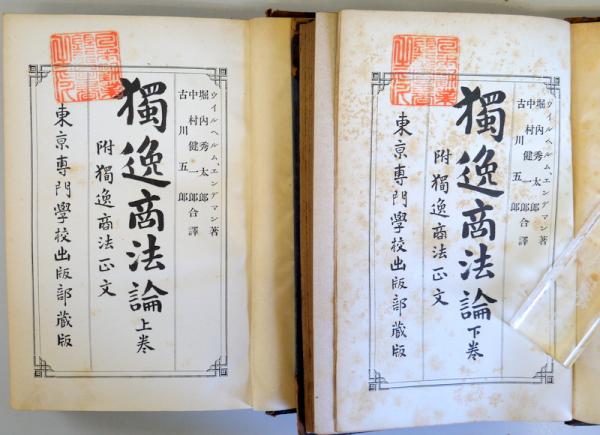 ウイルヘルム、エンデマン著
堀内秀太郎
中村健一郎合譯
古川五郎
獨逸商法論 上巻
附獨逸商法正文
東亰專門學校出版部藏版
ウイルヘルム、エンデマン著
堀内秀太郎
中村健一郎合譯
古川五郎
獨逸商法論 下巻
附獨逸商法正文
東亰專門學校出版部藏版